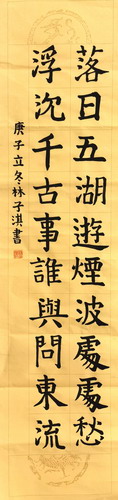 落日五湖遊煙波處處愁
浮沉千古事誰與問東流
庚子立冬林子淇書